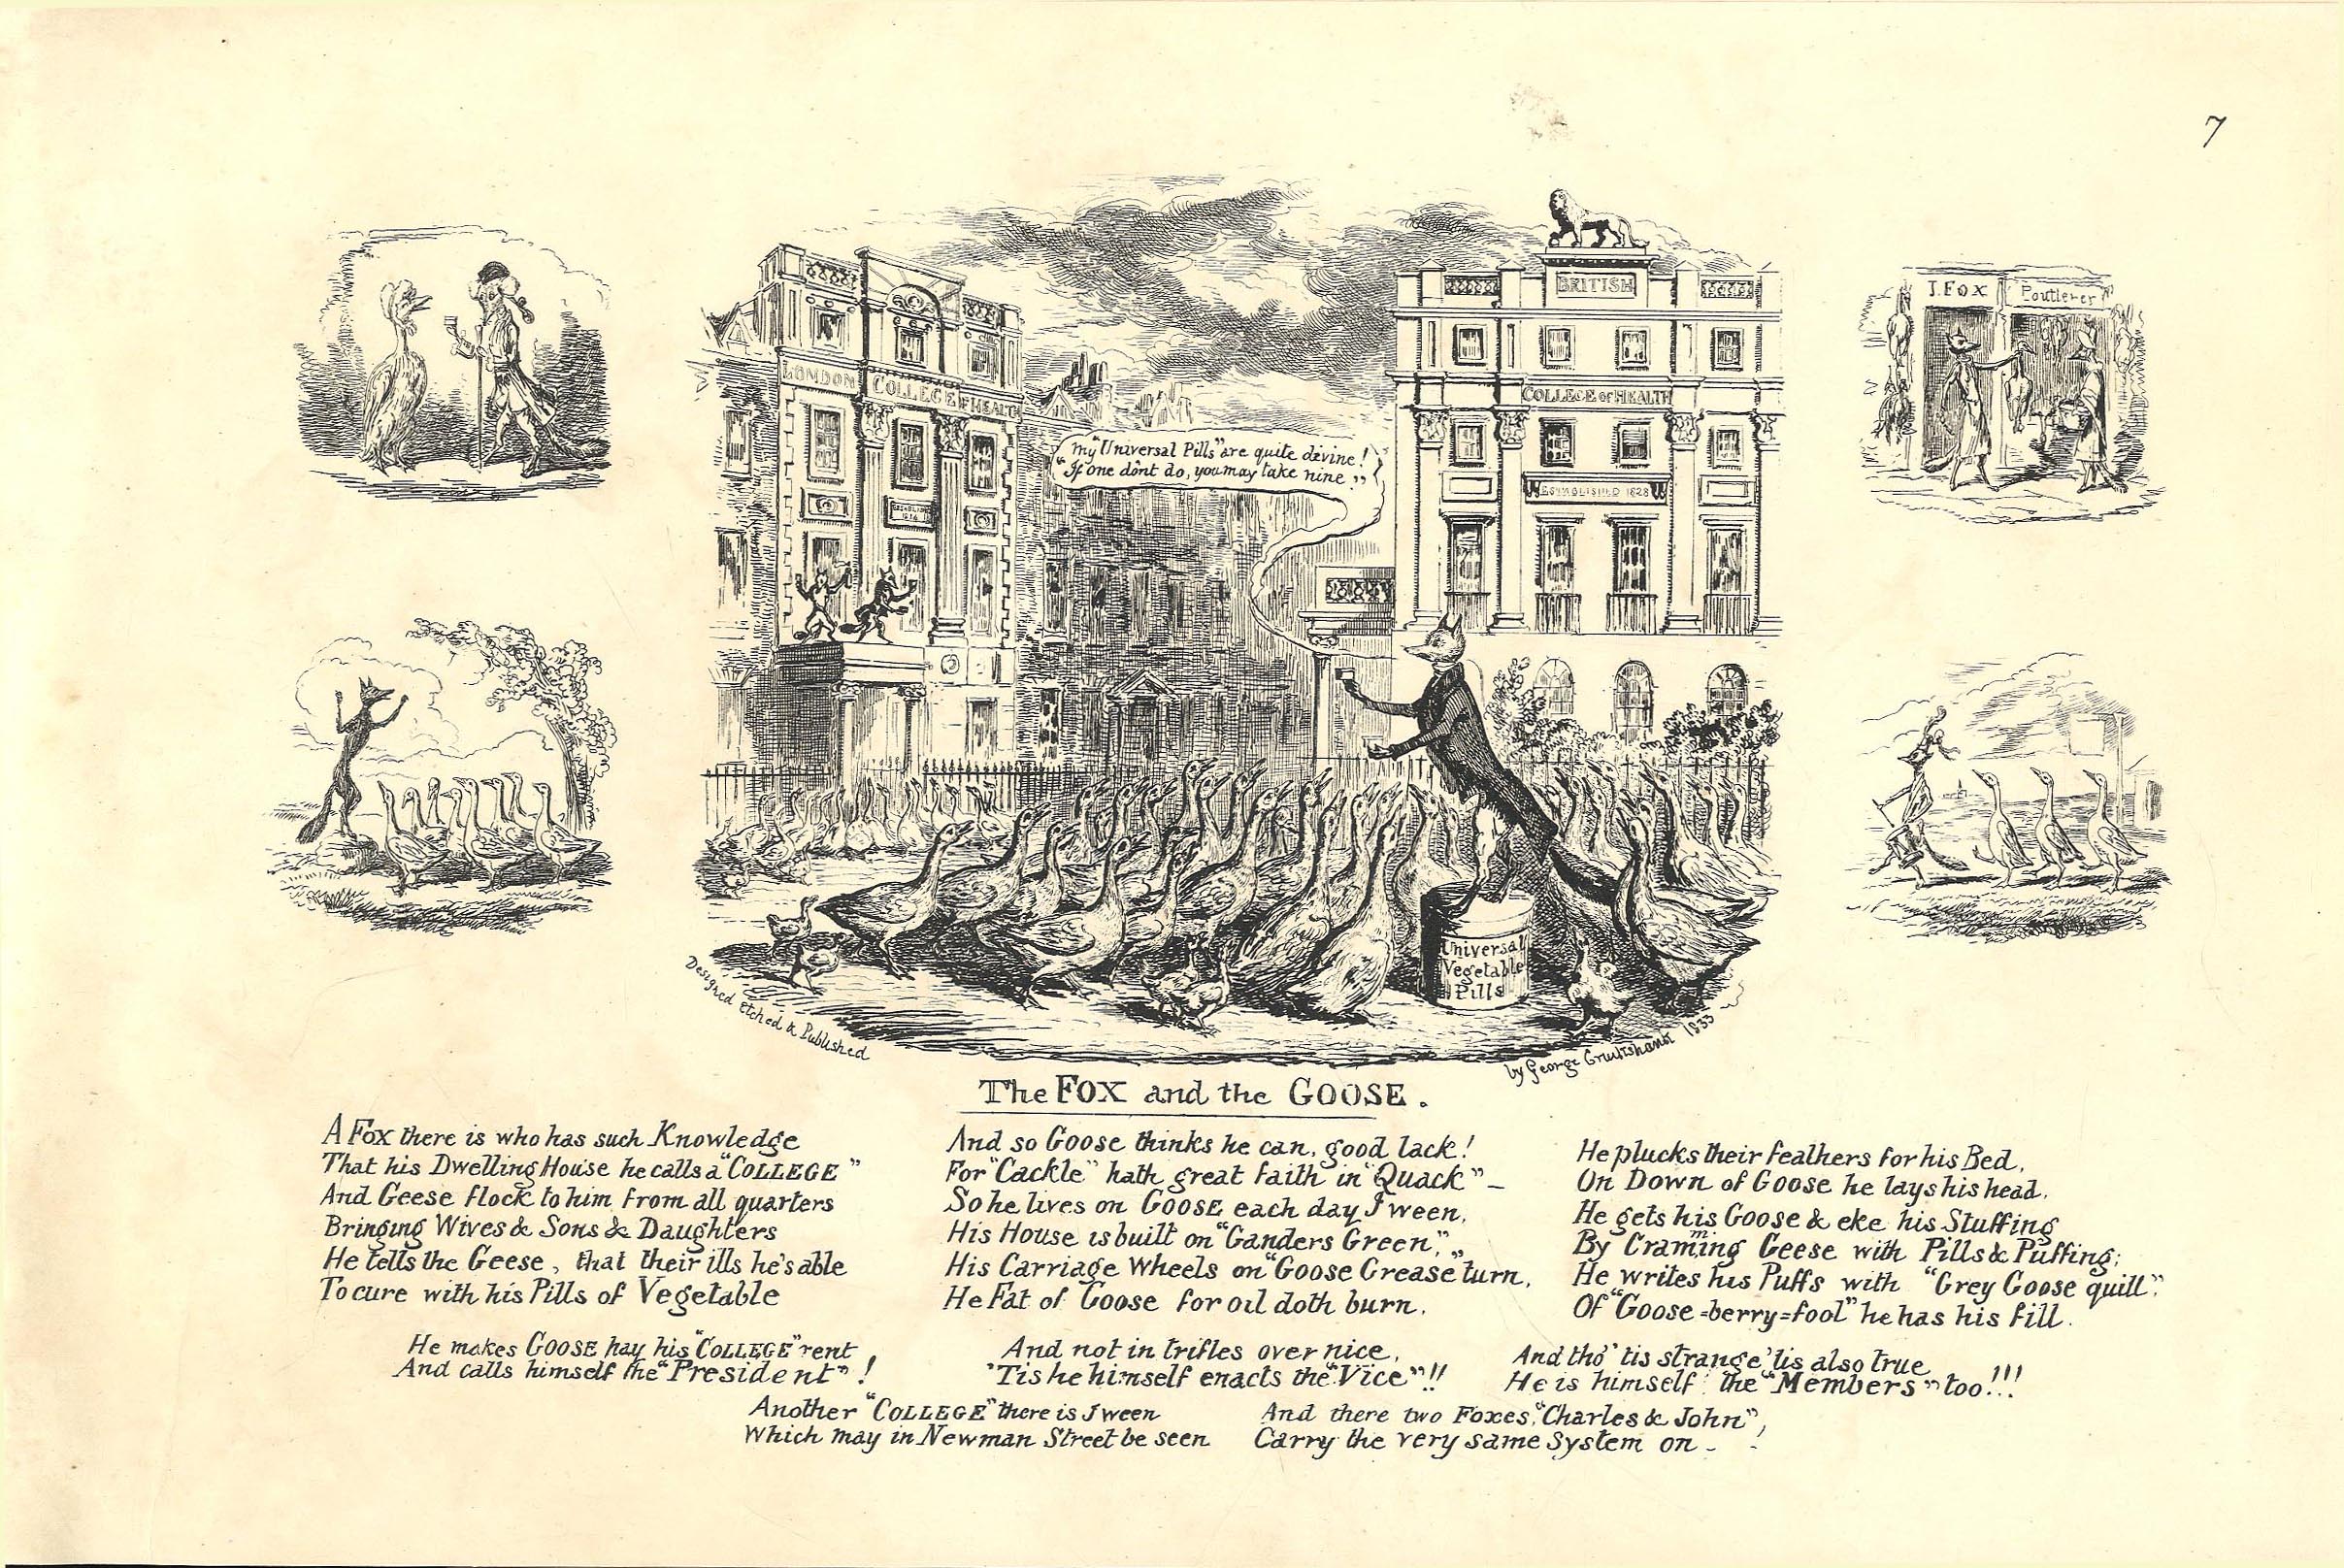 7
J. FOX Poutlerer
BRITISH
LONDON COLLEGE OF HEALTH
COLLEGE OF HEALTH
My "Universal Pills" are quite divine!
"If one dont do, you may take nine"
ESTABLISHED 1828
Universal
Vegetable
Pills
Designed Etched & Published
by George Cruikshank 1833
The FOX and the GOOSE.
A Fox there is who has such Knowledge
That his Dwelling House he calls a "COLLEGE"
And Geese flock to him from all quarters
Bringing Wives & Sons & Daughters
He tells the Geese, that their ills he's able
To cure with his Pills of Vegetable
And so Goose thinks he can, good lack!
For "Cackle" hath great faith in "Quack" –
So he lives on GOOSE each day I ween,
His House is built on "Ganders Green",
His Carriage Wheels on "Goose Grease" turn,
He Fat of Goose for oil doth burn.
He plucks their feathers for his Bed,
On Down of Goose he lays his head,
He gets his Goose & eke his Stuffing
By Cramming Geese with Pills & Puffing;
He writes his Puffs with "Grey Goose quill",
Of "Goose=berry=fool" he has his fill.
He makes GOOSE hay his "COLLEGE" rent
And calls himself the "President"!
And not in trifles over nice,
'Tis he himself enacts the "Vice"!!
And tho' tis strange 'tis also true
He is himself the "Members" too!!!
Another "COLLEGE" there is I ween
Which may in Newman Street be seen
And there two Foxes, "Charles & John",
Carry the very same system on –